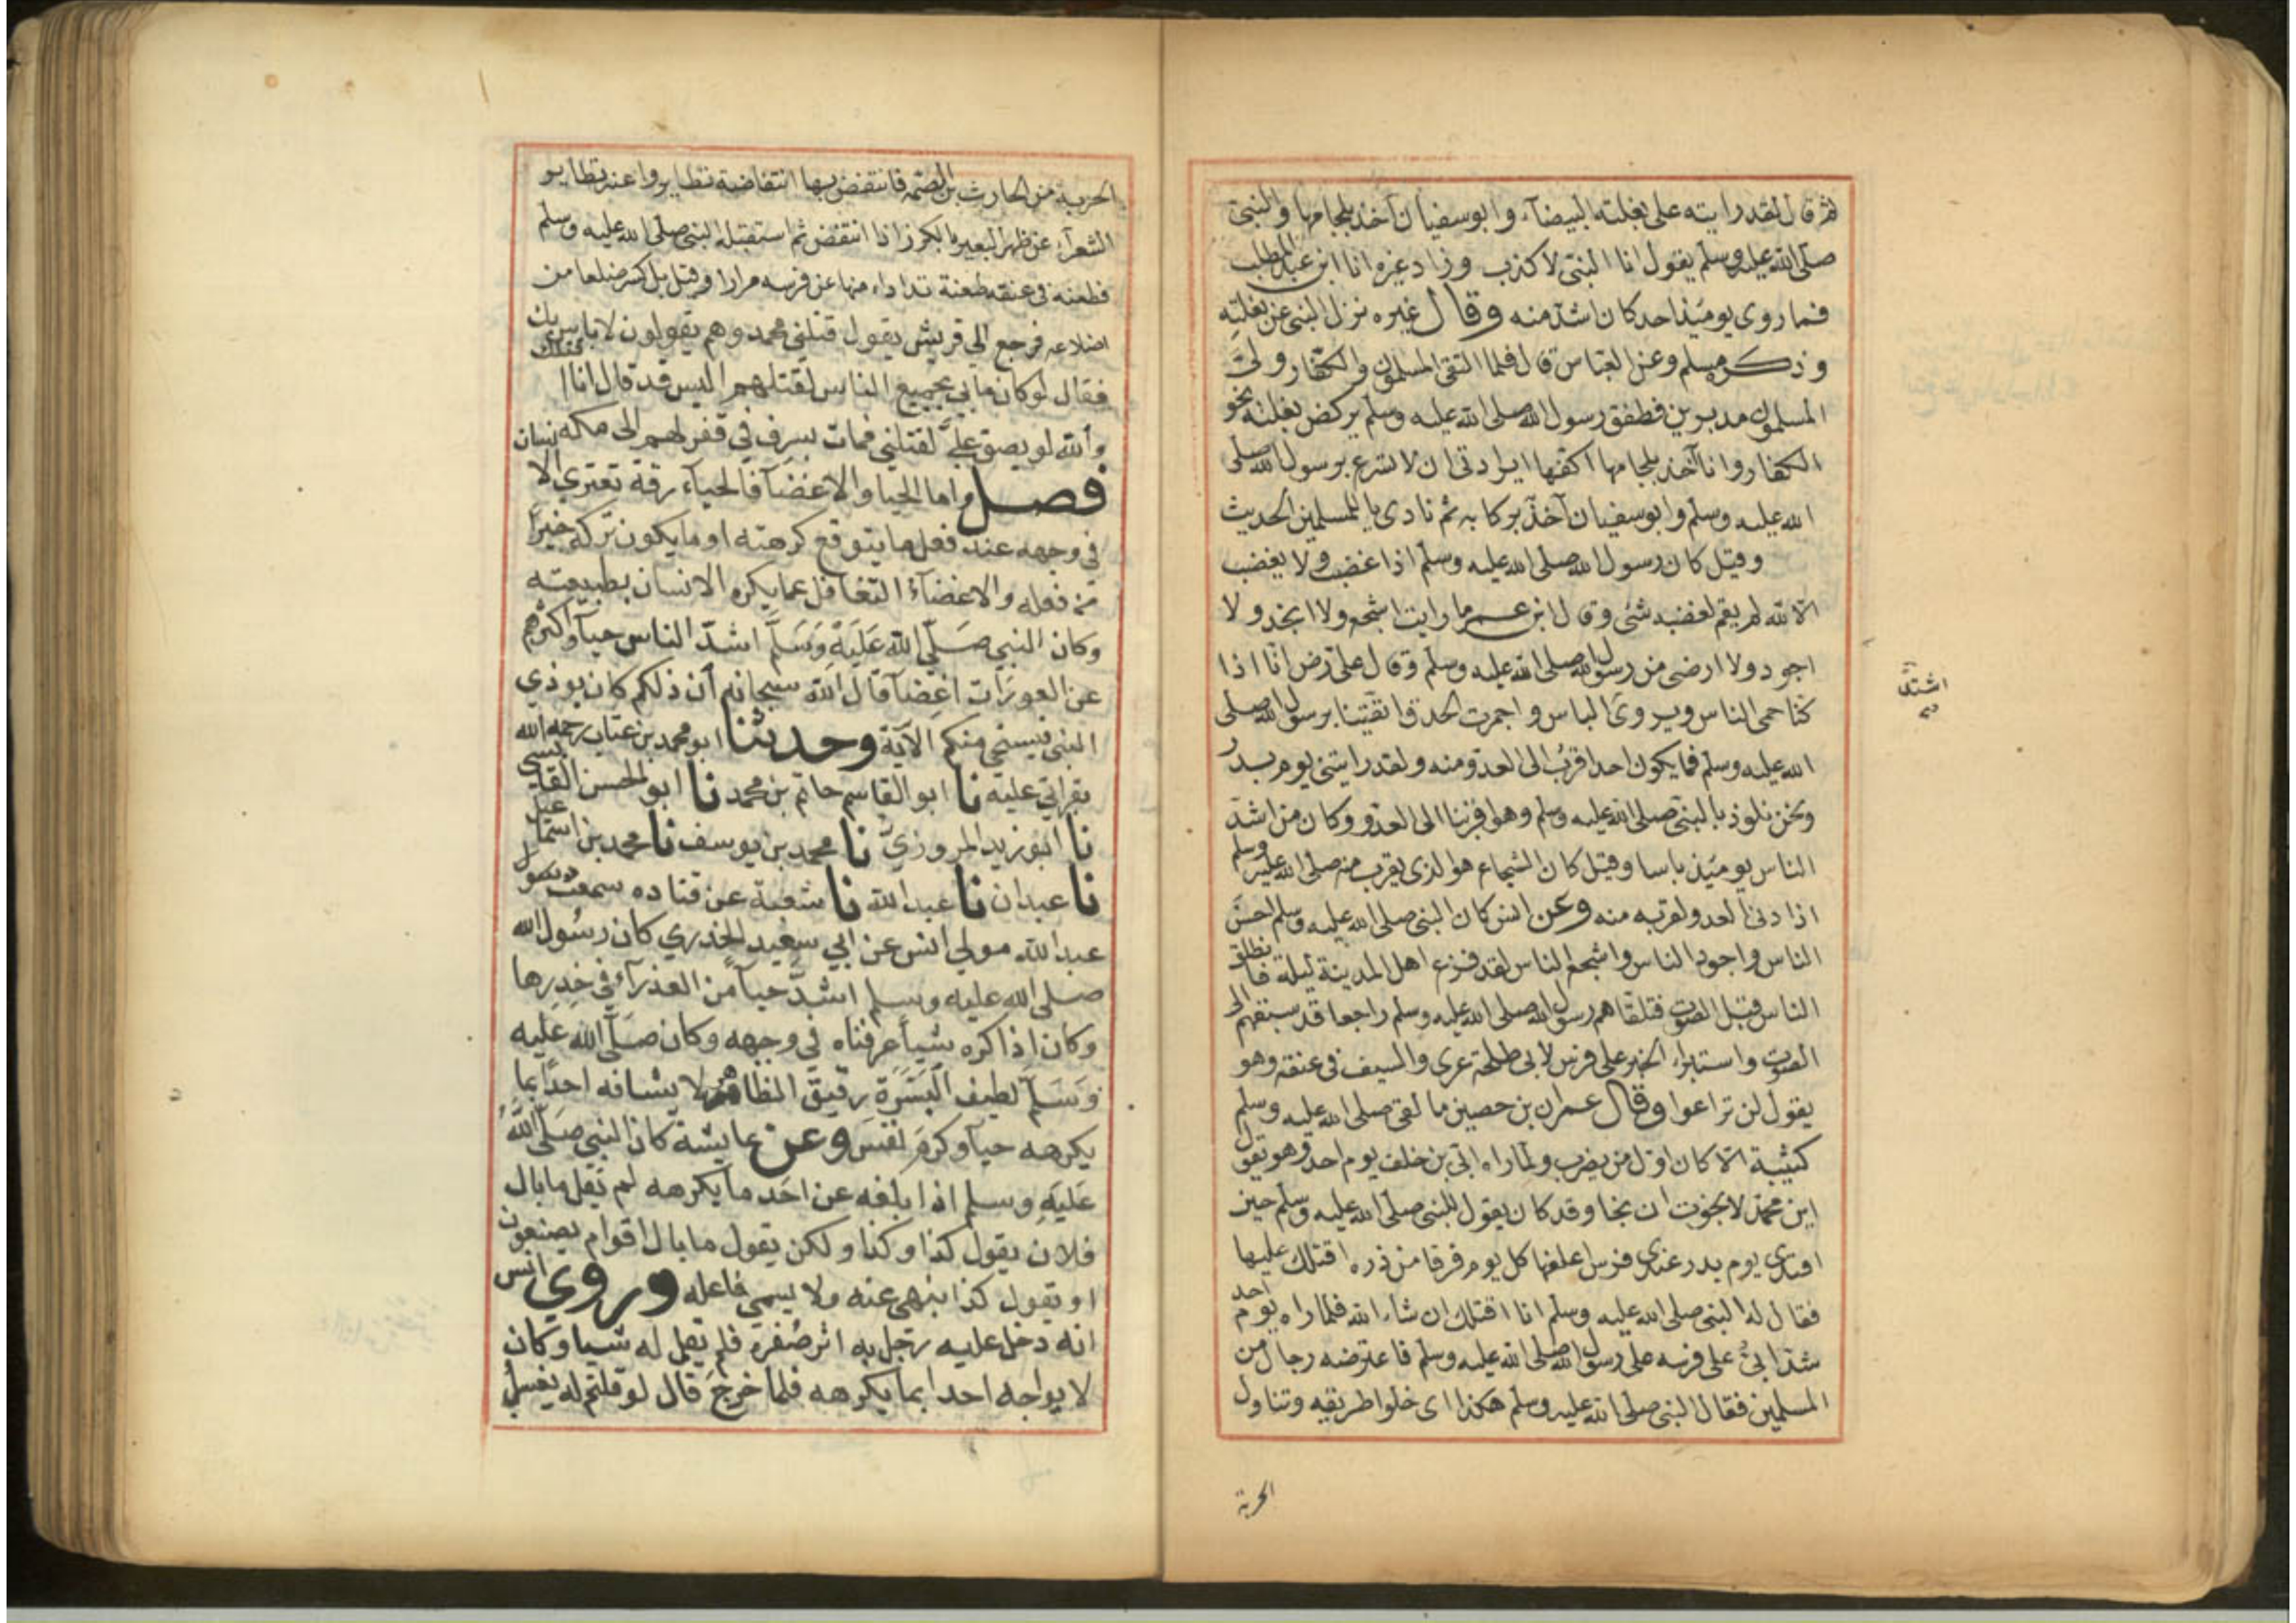 ثم قال لقد رايته على بغلته البيضآء وابو سفيان آخذ بلجامها والنبى
صلى الله عليه وسلم يقول انا النبى لا كذب وزاد غيره انا ابن عبد المطلب
فما روى يومئذ احد كان اشد منه وقال غيره نزل النبى عن بغلته
وذكر مسلم وعن العباس قال فلما التقى المسلمون والكفار ولى
المسلمون مدبرين فطفق رسول الله صلى الله عليه وسلم يركض بغلته نحو
الكفار وانا آخذ بلجامها اكفها ارادتى ان لا تسرع برسول الله صلى
الله عليه وسلم وابو سفيان آخذ بركابه ثم نادى يا للمسلمين الحديث
وقيل كان رسول الله صلى الله عليه وسلم اذا غضب ولا يغضب
الا لله لم يقم لغضبه شئ وقال ابن عمر ما رايت اشجع ولا انجد ولا
اجود ولا ارضى من رسول الله صلى الله عليه وسلم وقال على رض انا اذا
كنا حمى الناس ويروى الباس واحمرت الحدق اتقينا برسول الله صلى
اشتد
الله عليه وسلم فما يكون احد اقرب الى العدو منه ولقد رايتنى يوم بدر
ونحن نلوذ بالنبى صلى الله عليه وسلم وهو اقربنا الى العدو وكان من اشد
الناس يومئذ باسا وقيل كان الشجاع هو الذى يقرب منه صلى الله عليه وسلم
اذا دنى العدو لقربه منه وعن انس كان النبى صلى الله عليه وسلم احسن
الناس واجود الناس واشجع الناس لقد فزع اهل المدينة ليلة فانطلق
الناس قبل الصوت فتلقاهم رسول الله صلى الله عليه وسلم راجعا قد سبقهم الى
الصوت واستبراء الخبر على فرس لابى طلحة عرى والسيف فى عنقه وهو
يقول لن تراعوا وقال عمران بن حصين ما لقى صلى الله عليه وسلم
كتيبة الا كان اول من يضرب ولما راه ابى بن خلف يوم احد وهو يقول
اين محمد لا نجوت ان نجا وقد كان يقول للنبى صلى الله عليه وسلم حين
افتدى يوم بدر عندى فرس اعلفها كل يوم فرقا من ذره اقتلك عليها
فقال له النبى صلى الله عليه وسلم انا اقتلك ان شآء الله فلما راه يوم احد
شد ابى على فرسه على رسول الله صلى الله عليه وسلم فاعترضه رجال من
المسلمين فقال النبى صلى الله عليه وسلم هكذا اى خلوا طريقه وتناول
الحربة
الحربة من الحارث بن الصمه فانتفض بها انتفاضة تطايروا عنه تطاير
الشعرآء عن ظهر البعير اذا انتفض ثم استقبله النبى صلى الله عليه وسلم
فطعنه فى عنقه طعنة تداداء منها عن فرسه مرارا وقيل بل كسر ضلعا من
اضلاعه فرجع الى قريش يقول قتلنى محمد وهم يقولون لا باس بك
فقال لو كان ما بى بجميع الناس لقتلهم اليس قد قال انا اقتلك
والله لو بصق على لقتلنى فمات بسرف فى قفولهم الى مكه
فصل واما الحيا والاغضآ فالحيآء رقة تعترى
فى وجهه عند فعل ما يتوقع كرهته او ما يكون تركه خيرا
من فعله والاغضآء التغافل عما يكره الانسان بطبيعته
وكان النبي صلى الله عليه وسلم اشد الناس حيآ واكثرهم
عن العورات اغضآ قال الله سبحانه ان ذلكم كان يوذي
النبى فيستحي منكم الآية وحدثنا ابو محمد بن عتاب رحمه الله
بقراتي عليه نا ابو القاسم حاتم بن محمد نا ابو الحسن القابسى
نا ابو زيد المروزي نا محمد بن يوسف نا محمد بن اسماعيل
نا عبدان نا عبد الله نا شعبة عن قتاده سمعت
عبد الله مولي انس عن ابي سعيد الخدري كان رسول الله
صلى الله عليه وسلم اشد حيآ من العذرآء في خدرها
وكان اذا كره شياء عرفناه في وجهه وكان صلى الله عليه
وسلم لطيف البشرة رقيق الظاهر لا يشافه احدا بما
يكرهه حيآ وكرم نفس وعن عايشة كان النبي صلى الله
عليه وسلم اذا بلغه عن احد ما يكرهه لم يقل ما بال
فلان يقول كذا وكذا ولكن يقول ما بال اقوام يصنعون
او يقول كذا ينهي عنه ولا يسمي فاعله وروي انس
انه دخل عليه رجل به اثر صفرة فلم يقل له شيا وكان
لا يواجه احدا بما يكرهه فلما خرج قال لو قلتم له يغسل